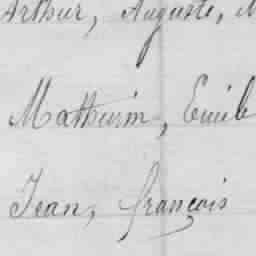 Arthur, Auguste,
Mathurin, Emile
Jean, françois